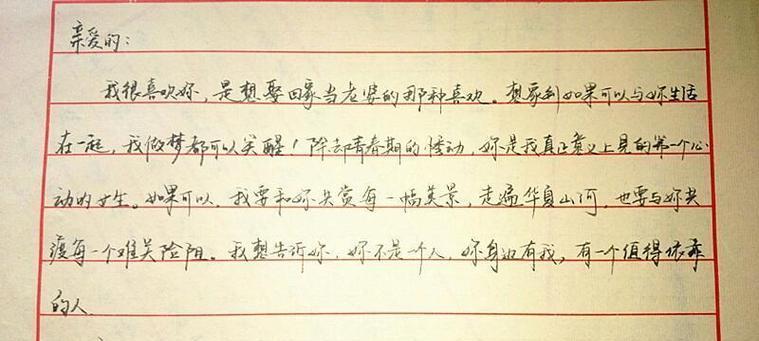 亲爱的:
我很喜欢妳，是想娶回家当老婆的那种喜欢。想象到如果可以与妳生活
在一起，我做梦都可以笑醒！除却青春期的悸动，妳是我真正意义上见的第一个心
动的女生。如果可以，我要和妳共赏每一幅美景，走遍华夏山河，也要与妳共
渡每一个难关险阻。我想告诉妳，妳不是一个人，妳身边有我，有一个值得依靠
的人